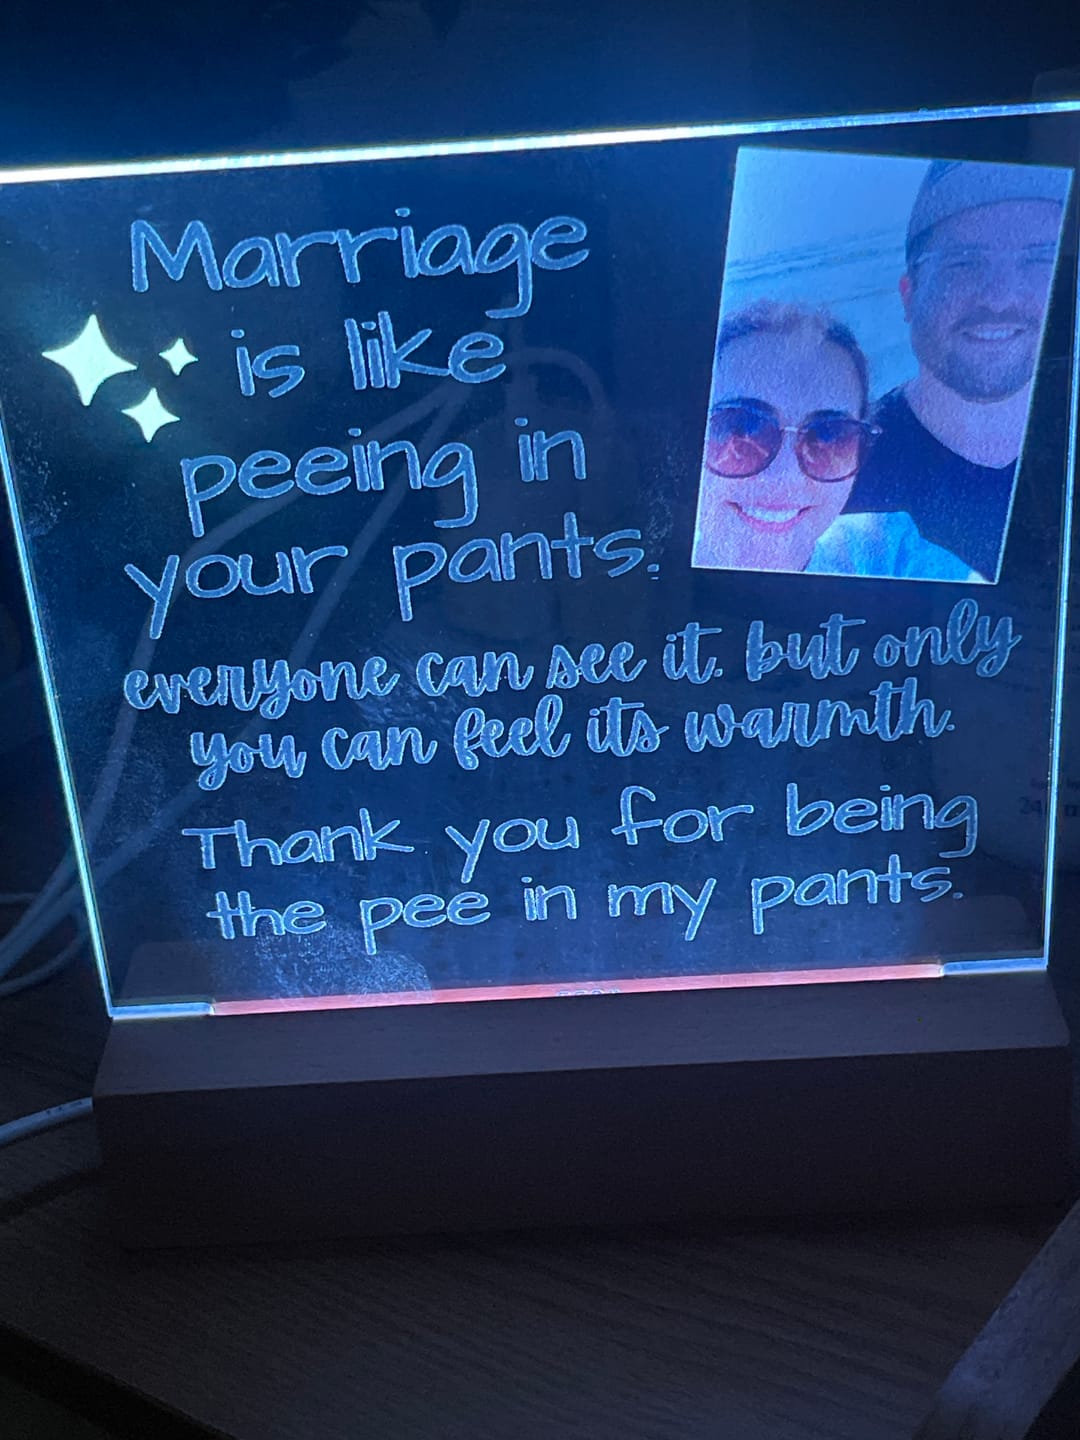 Marriage
is like
peeing in
your pants.
everyone can see it. but only
you can feel its warmth.
Thank you for being
the pee in my pants.